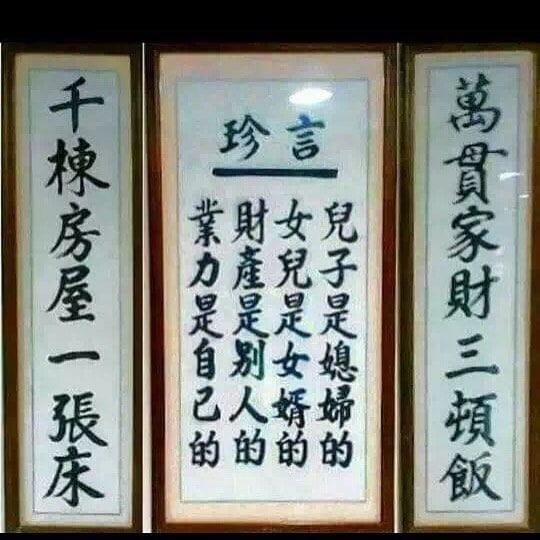 萬貫家財三頓飯
珍言
兒子是媳婦的
女兒是女婿的
財產是別人的
業力是自己的
千棟房屋一張床